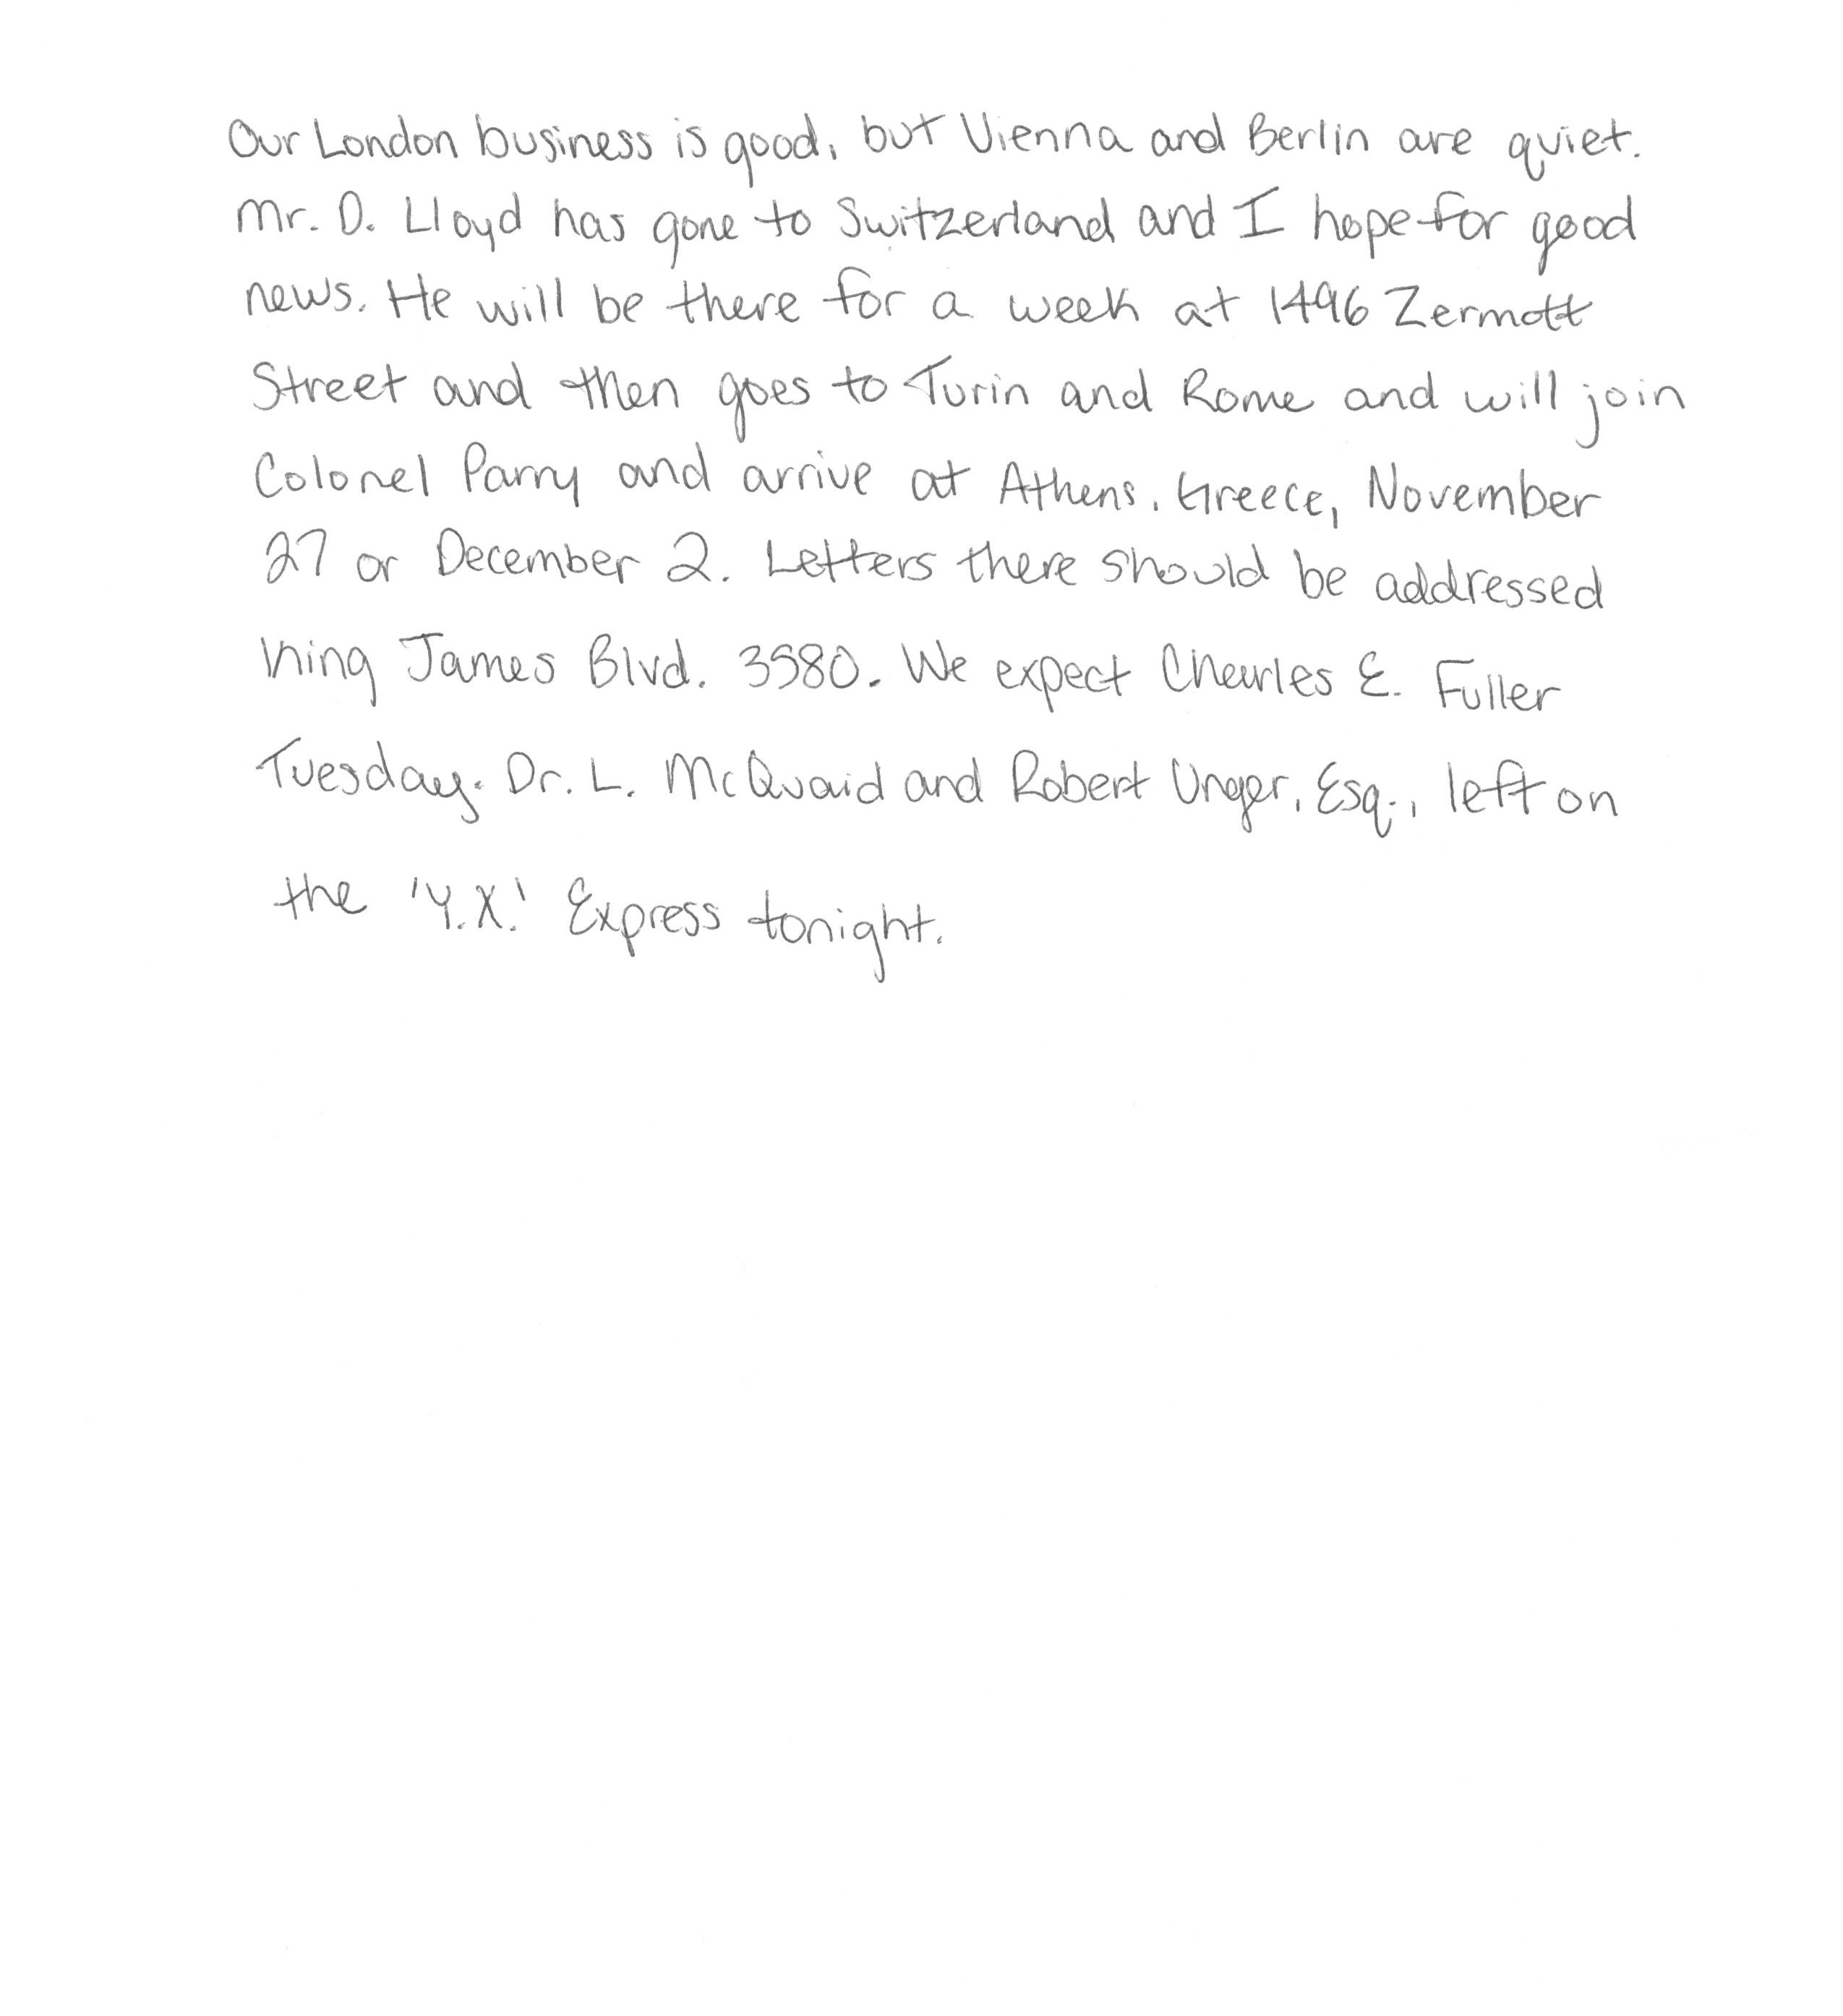 Our London business is good, but Vienna and Berlin are quiet.
Mr. D. Lloyd has gone to Switzerland and I hope for good
news. He will be there for a week at 1496 Zermott
Street and then goes to Turin and Rome and will join
Colonel Parry and arrive at Athens, Greece, November
27 or December 2. Letters there should be addressed
King James Blvd. 3580. We expect Charles E. Fuller
Tuesday. Dr. L. McQuaid and Robert Unger, Esq., left on
the 'Y.X.' Express tonight.